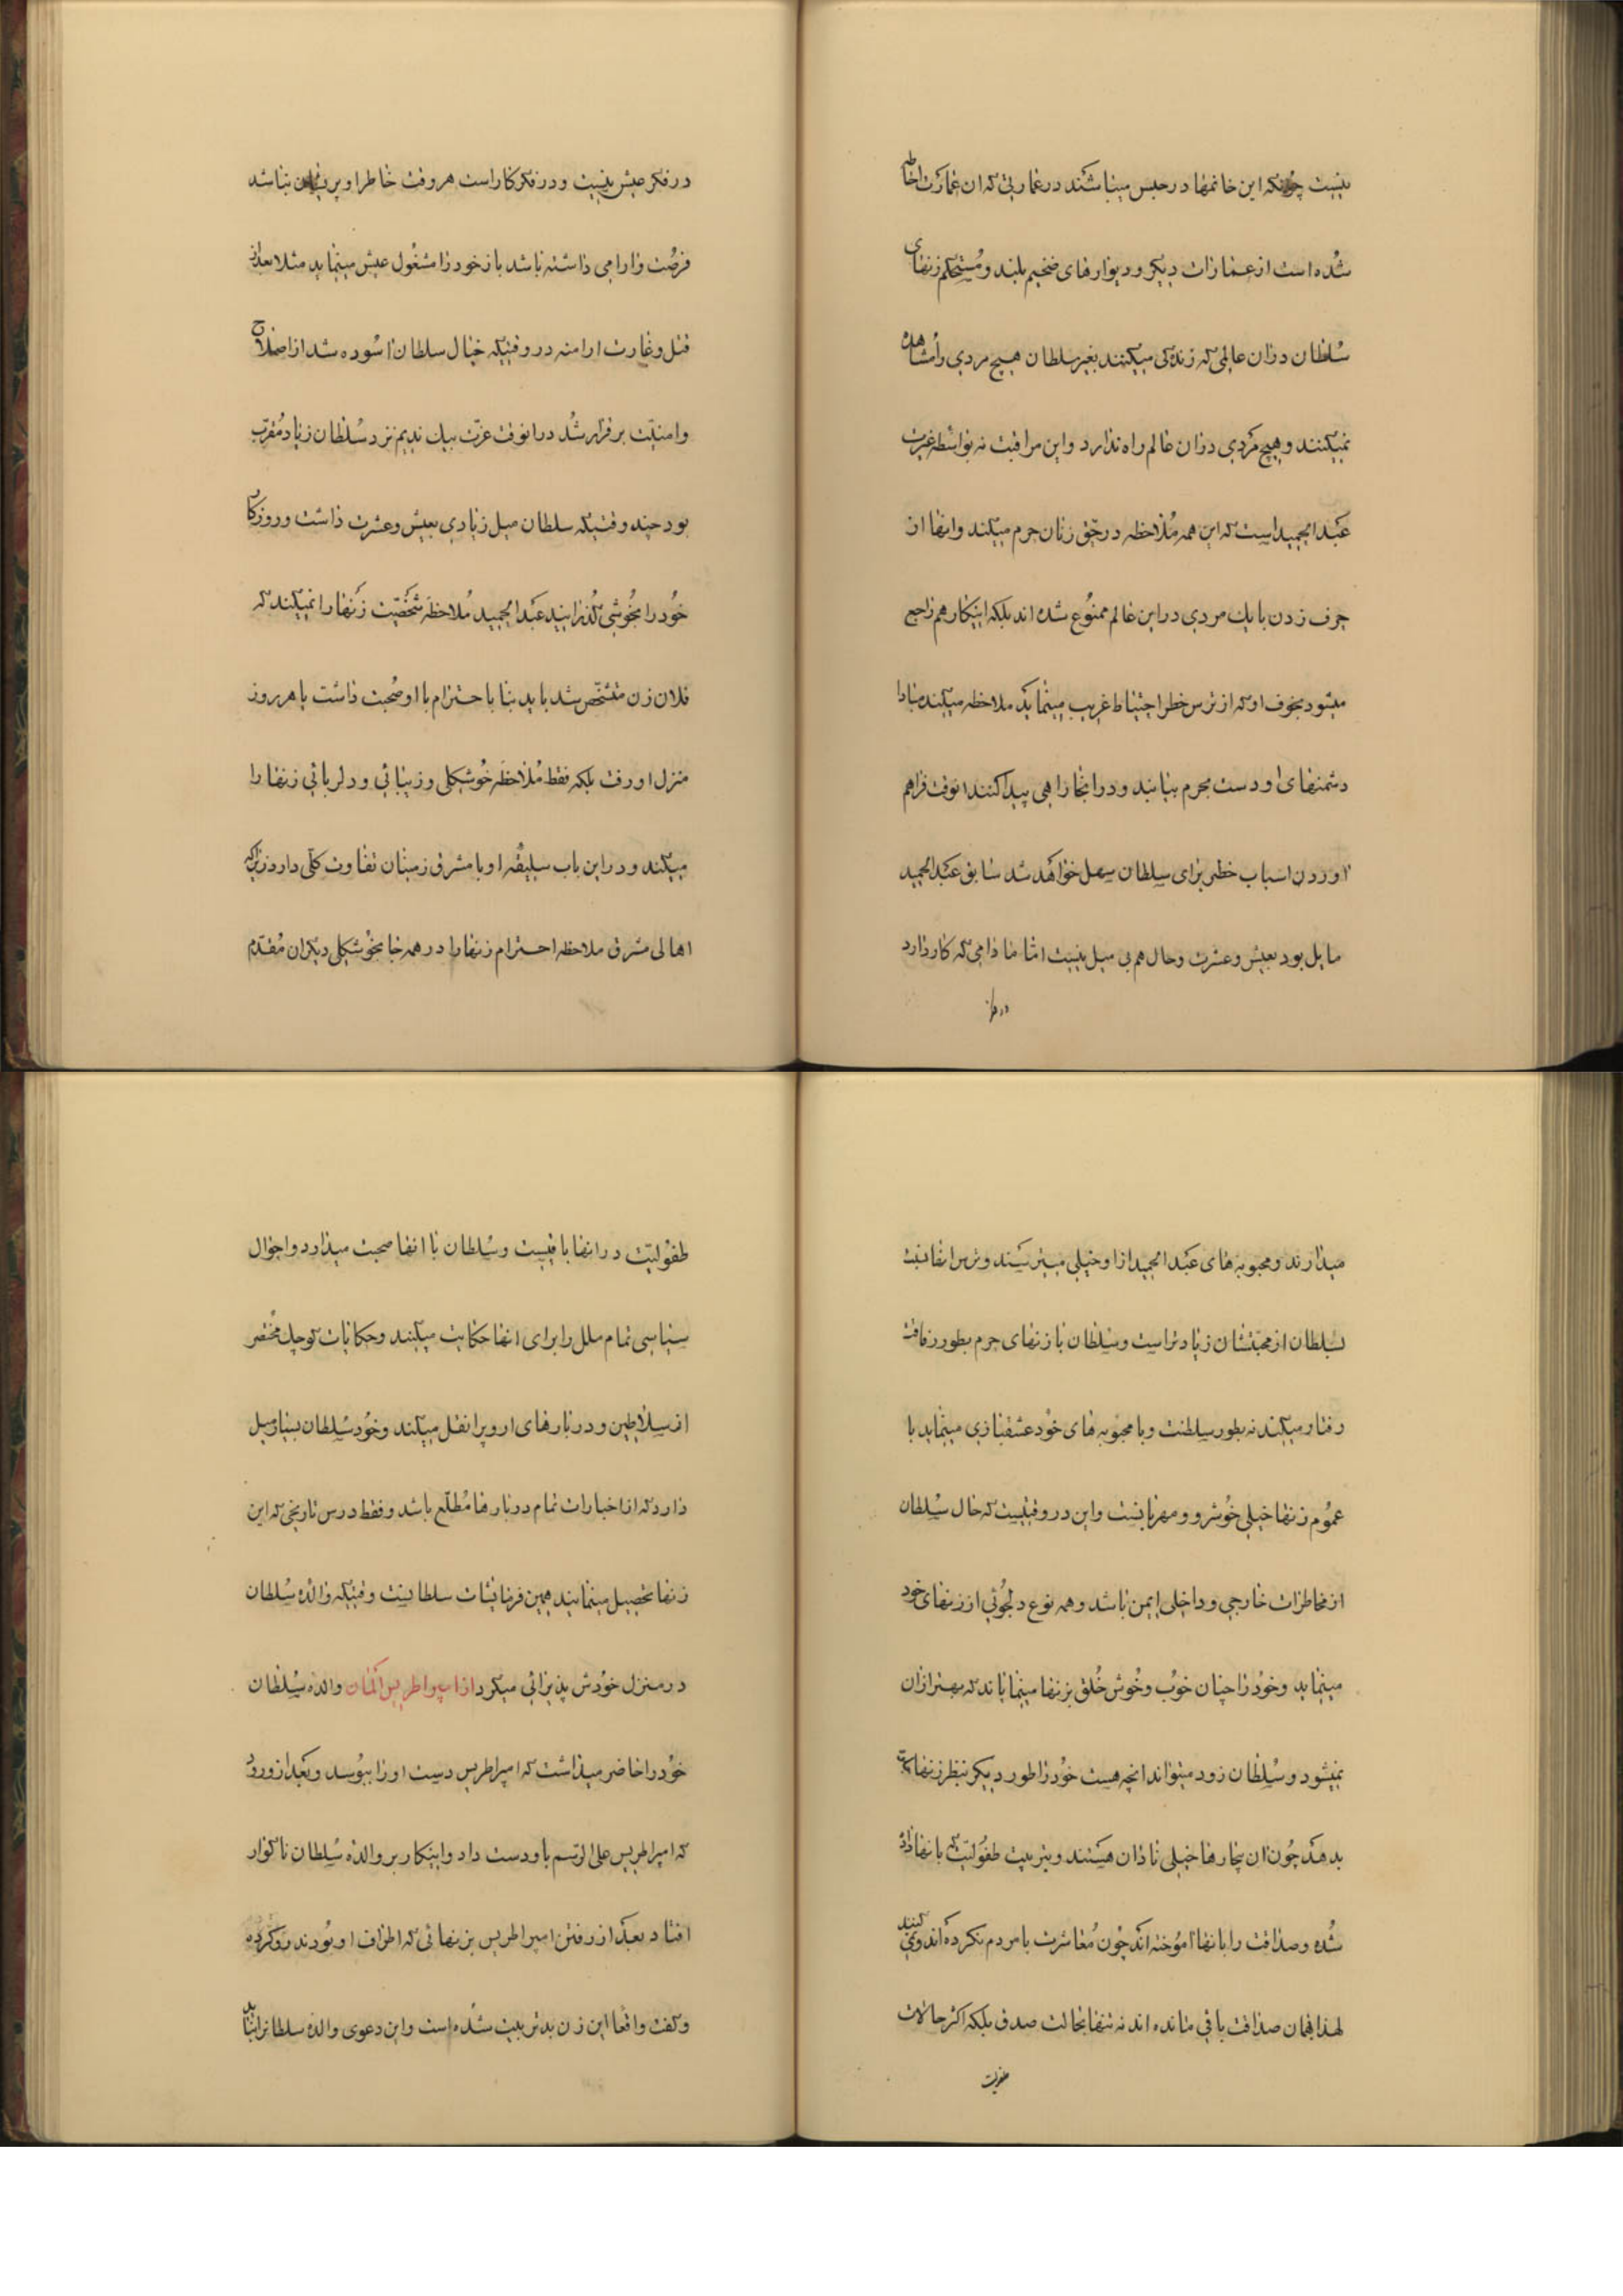 نیست چونکه این خانمها در حبس میباشند در عمارتی که ان عمارت احاطه
شده است از عمارات دیگر و دیوارهای ضخیم بلند و مستحکم زنهای
سلطان در ان عالمی که زندگی میکنند بغیر سلطان هیچ مردی را مشاهده
نمیکنند و هیچ مردی در ان عالم راه ندارد و این مراقبت نه بواسطه غیرت
عبدالحمید است که این همه ملاحظه در حق زنان حرم میکند و انها از
حرف زدن با یک مردی در این عالم ممنوع شده اند بلکه اینکار هم راجع
میشود بخوف او که از ترس خطر احتیاط غریب مینماید ملاحظه میکند مبادا
دشمنهای او دست بحرم بیابند و در انجا راهی پیدا کنند انوقت فراهم
اوردن اسباب خطر برای سلطان سهل خواهد شد سابق عبدالحمید
مایل بود بعیش و عشرت و حال هم بی میل نیست اما مادامی که کار دارد
در فکر
در فکر عیش نیست و در فکر کار است هر وقت خاطر او پریشان نباشد
فرصت و ارامی داشته باشد باز خود را مشغول عیش مینماید مثلا بعد از
قتل و غارت ارامنه در وقتیکه خیال سلطان اسوده شد از اصلاح
و امنیت برقرار شد در انوقت عزت بیک ندیم نزد سلطان زیاد مقرب
بود چند وقتیکه سلطان میل زیادی بعیش و عشرت داشت و روزگار
خود را بخوشی گذرانید عبدالحمید ملاحظه شخصیت زنها را نمیکند که
فلان زن متشخص شد باید بنا باحترام با او صحبت داشت یا هر روز
منزل او رفت بلکه فقط ملاحظه خوشگلی و زیبائی و دلربائی زنها را
میکند و در این باب سلیقه او با مشرق زمینان تفاوت کلی دارد زیرا که
اهالی مشرق ملاحظه احترام زنها را در همه جا بخوشگلی دیگران مقدم
میدارند و محبوبه های عبدالحمید از او خیلی میترسند و ترس انها نسبت
بسلطان از محبتشان زیادتر است و سلطان با زنهای حرم بطور رفاقت
رفتار میکند نه بطور سلطنت و با محبوبه های خود عشقبازی مینماید با
عموم زنها خیلی خوشرو و مهربانست و این در وقتیست که حال سلطان
از مخاطرات خارجی و داخلی ایمن باشد و همه نوع دلجوئی از زنهای خود
مینماید و خود را چنان خوب و خوش خلق بزنها مینمایاند که بهتر از ان
نمیشود و سلطان زود میتواند انچه هست خود را طور دیگر بنظر زنها
بدهد چون ان بیچارها خیلی نادان هستند و تربیت طفولیت که بانها داده
شده و صداقت را بانها اموخته اند چون معاشرت با مردم نکرده اند و نمی کنند
لهذا بهمان صداقت باقی مانده اند نه تنها بحالت صدق بلکه اکثر حالات
طفولیت
طفولیت در انها باقیست و سلطان با انها صحبت میدارد و احوال
سیاسی تمام ملل را برای انها حکایت میکند و حکایات کوچک مختصر
از سلاطین و دربارهای اروپ را نقل میکند و خود سلطان بسیار میل
دارد که از اخبارات تمام دربارها مطلع باشد و فقط درس تاریخی که این
زنها تحصیل مینمایند همین فرمایشات سلطانیست وقتیکه والده سلطان
در منزل خودش پذیرائی میکرد از امپراطریس المان والده سلطان
خود را حاضر میداشت که امپراطریس دست او را ببوسد و بعد از ورود
که امپراطریس علی الرسم باو دست داد و اینکار بر والده سلطان ناگوار
افتاد بعد از رفتن امپراطریس بزنهائی که اطراف او بودند رو کرده
و گفت واقعا این زن بد تربیت شده است و این دعوی والده سلطان را